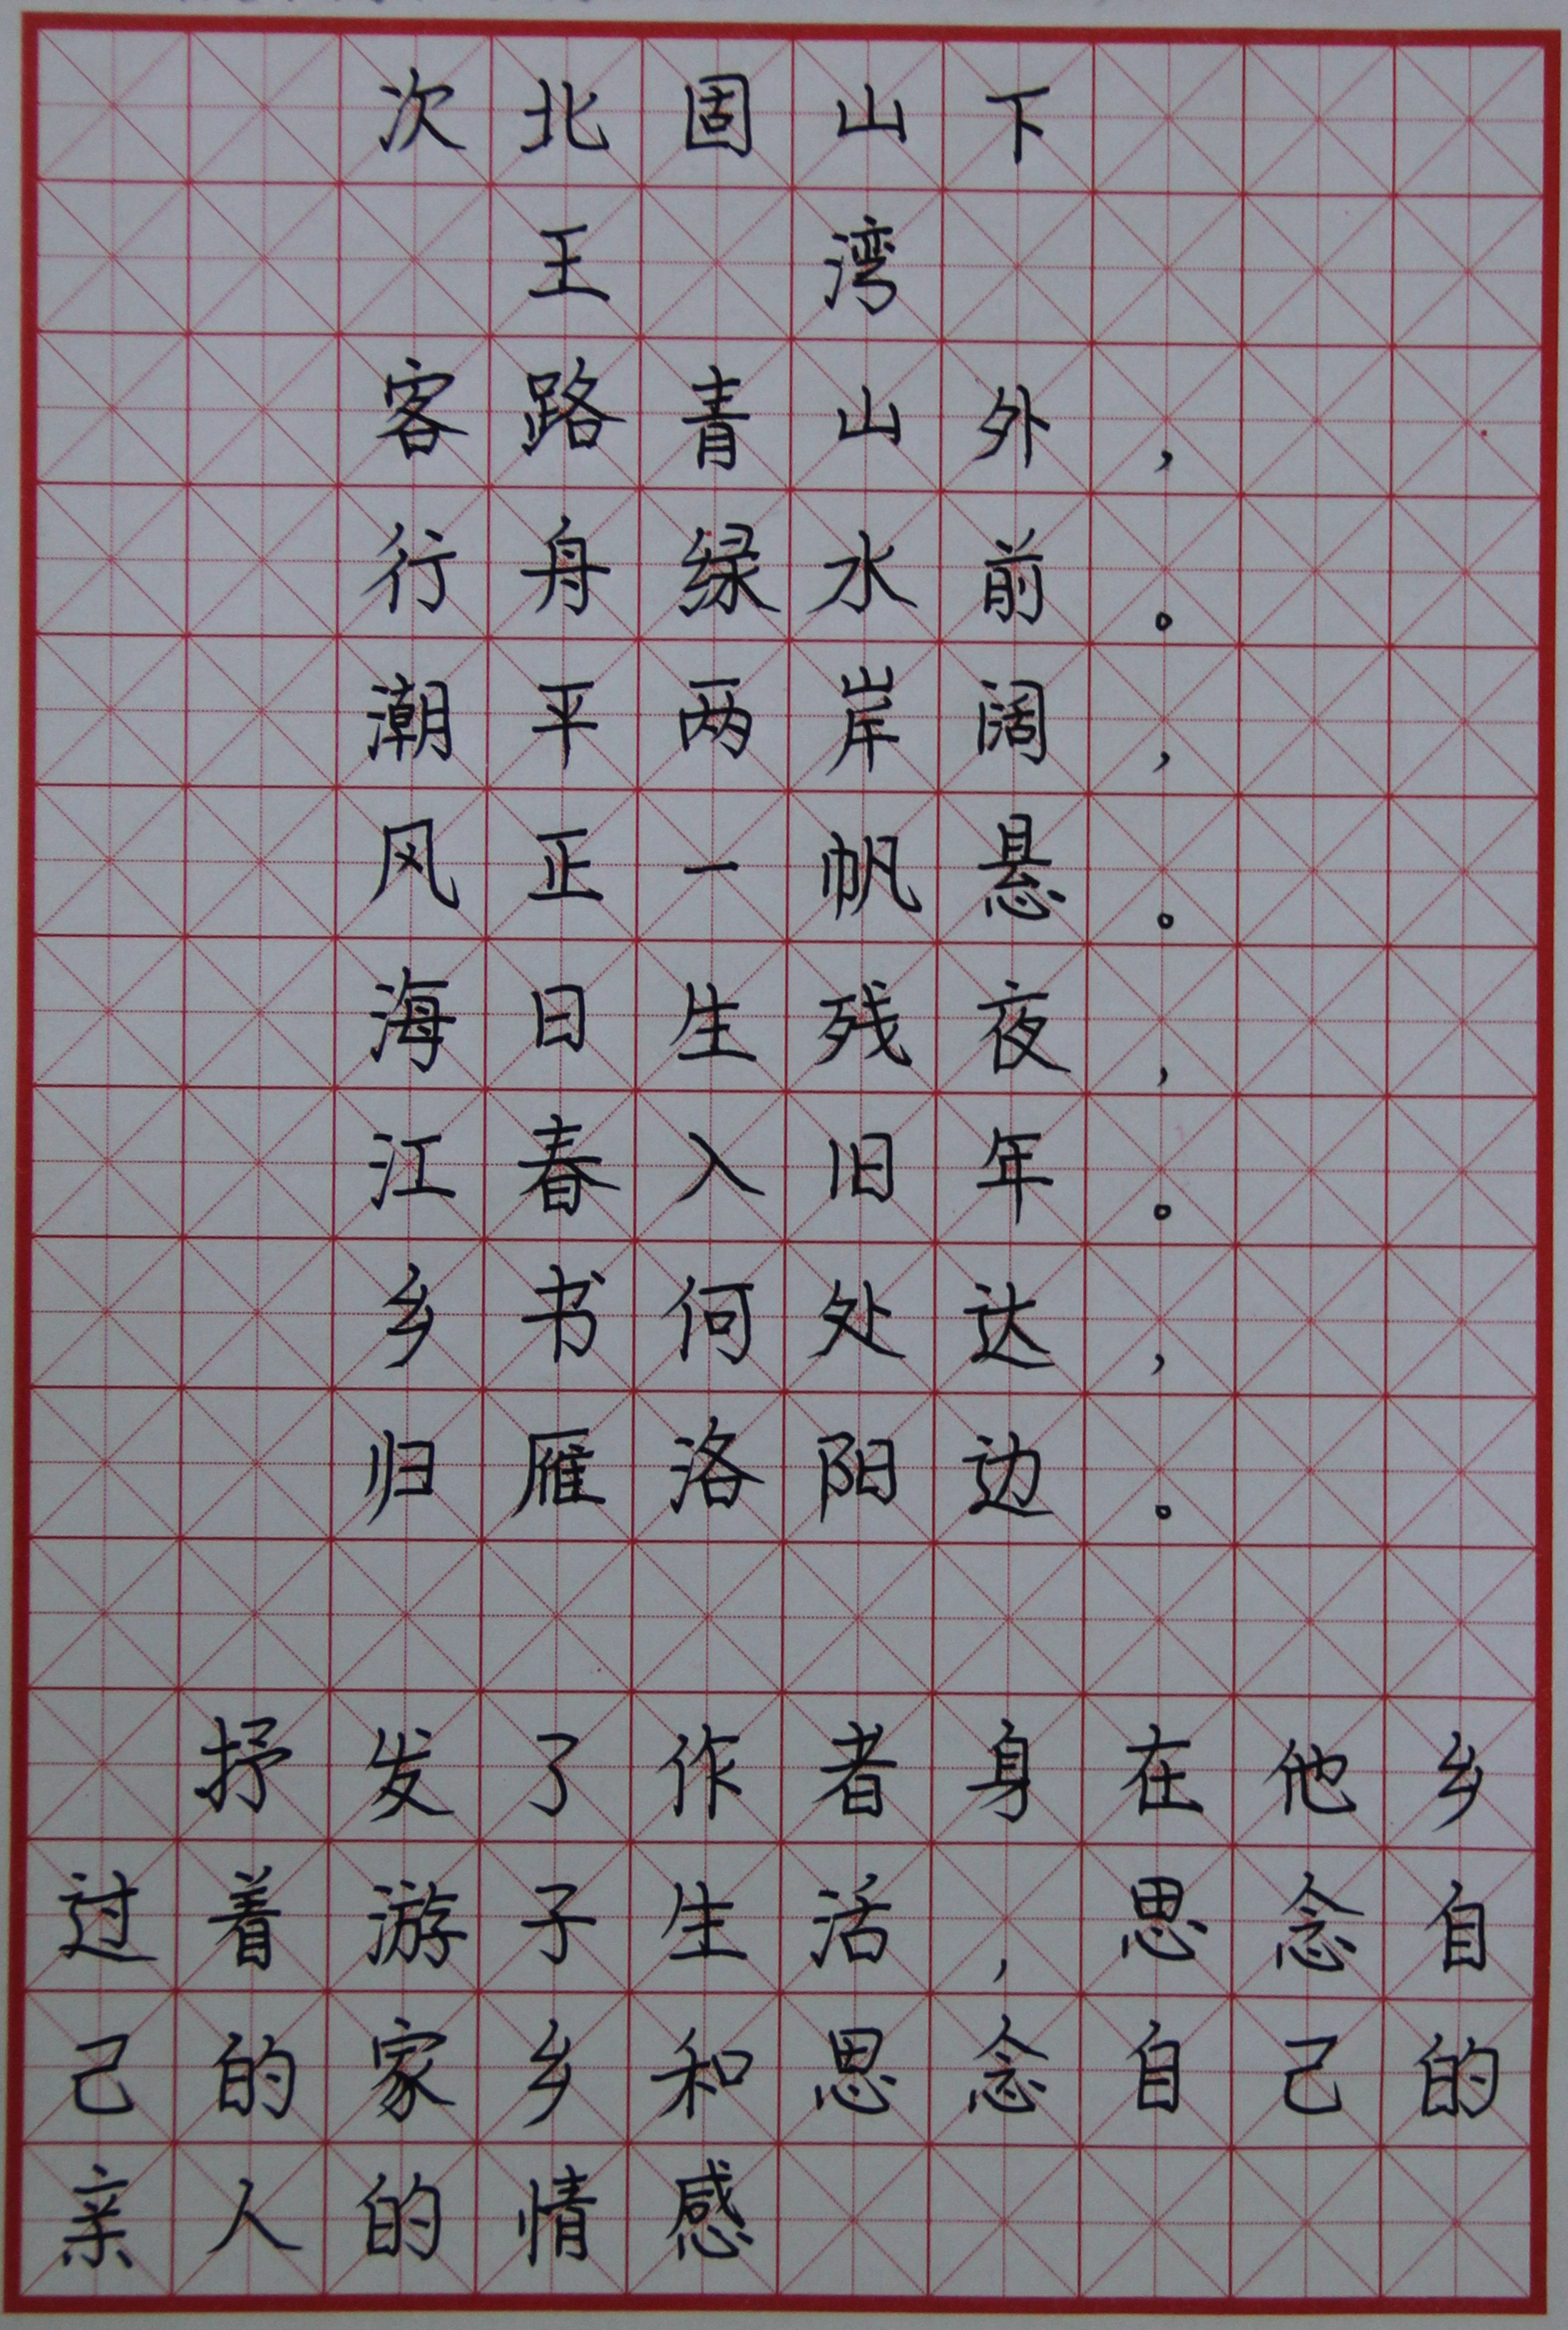 次北固山下
王 湾
客路青山外，
行舟绿水前。
潮平两岸阔，
风正一帆悬。
海日生残夜，
江春入旧年。
乡书何处达，
归雁洛阳边。
抒发了作者身在他乡
过着游子生活，思念自
己的家乡和思念自己的
亲人的情感